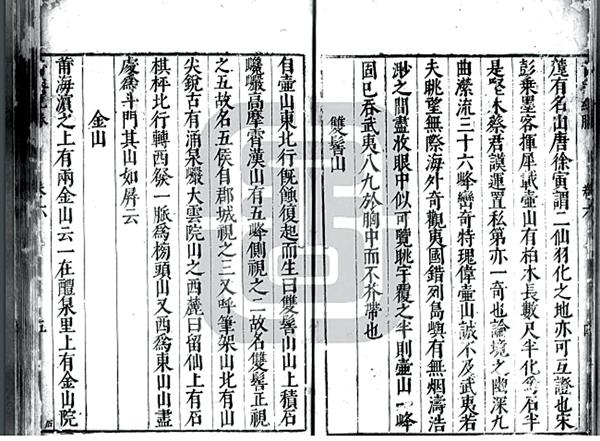 有名山唐徐寅謂二仙羽化之地亦可互證也宋
彭乘墨客揮犀載壺山有柏木長數尺半化為石半
是堅木蔡君謨運置私第亦一奇也論境之幽深九
曲縈流三十六峰巒奇特瑰偉壺山誠不及武夷若
夫眺望無際海外奇觀夷國錯列島嶼有無烟濤浩
渺之間盡收眼中似可覽眺宇覆之半則壺山一峰
固已吞武夷八九於胸中而不芥帶也
雙髻山
自壺山東北行旣蝕復起而生曰雙髻山山上積石
巉巗高摩霄漢山有五峰側視之二故名雙髻正視
之五故名五侯自郡城視之三又呼筆架山北有山
尖銳古有涌泉巗大雲院山之西麓曰留仙上有石
棋枰北行轉西發一脈為榜頭山又西為東山山盡
處為斗門其山如屏云
金山
莆海濵之上有兩金山云一在醴泉里上有金山院
卷六
五